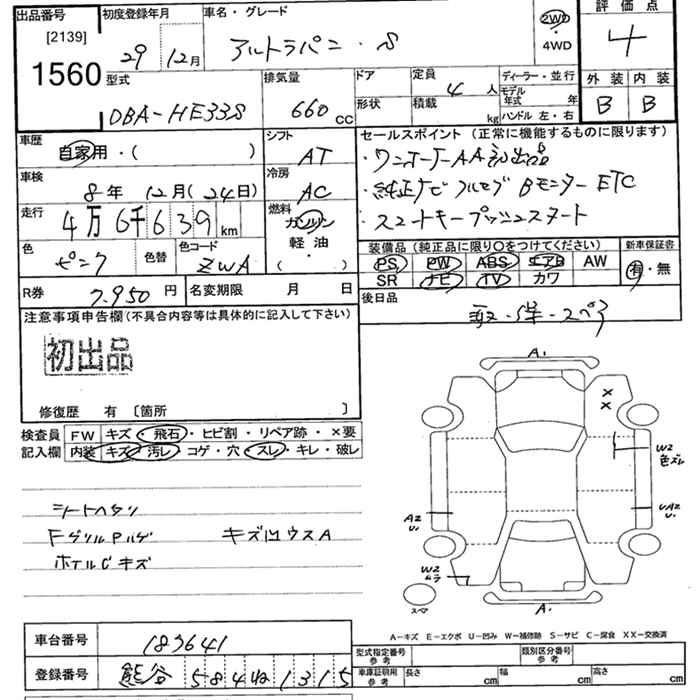 出品番号 初度登録年月 車名・グレード 評価点
[2139] 29年 12月 アルトラパン・S 2WD・4WD 4
1560
型式 排気量 ドア 定員 4人 ディーラー・並行 外装 内装
DBA-HE33S 660cc 形状 積載 kg モデル年式 年 B B
ハンドル 左・右
車歴 シフト セールスポイント(正常に機能するものに限ります)
自家用・( ) AT ・ワンオーナーAA初出品
車検 冷房 ・純正ナビ フルセグ Bモニター ETC
8年 12月(24日) AC ・スマートキープッシュスタート
走行 燃料
4万6千639km ガソリン
軽油
・
( )
色 色替 色コード 装備品(純正品に限り○をつけてください) 新車保証書
ピンク ZWA PS PW ABS エアB AW 有・無
SR ナビ TV カワ
R券 7,950円 名変期限 月 日 後日品
注意事項申告欄(不具合内容等は具体的に記入して下さい) 取・保・スペア
初出品
修復歴 有 〔箇所 〕
検査員 FW キズ・飛石・ヒビ割・リペア跡・×要
記入欄 内装 キズ・汚レ・コゲ・穴・スレ・キレ・破レ
シートヘタリ
FグリルPハゲ キズ凹ウスA
ホイルCキズ
A.
×
×
W2
色ズレ
A2
U.
UA2
U.
W2
ムラ
スペア
A.
A-キズ E-エクボ U-凹み W-補修跡 S-サビ C-腐食 XX-交換済
車台番号 183641 型式指定番号 参考 類別区分番号 参考
登録番号 熊谷 584 1315 車庫証明用 参考 長さ cm 幅 cm 高さ cm